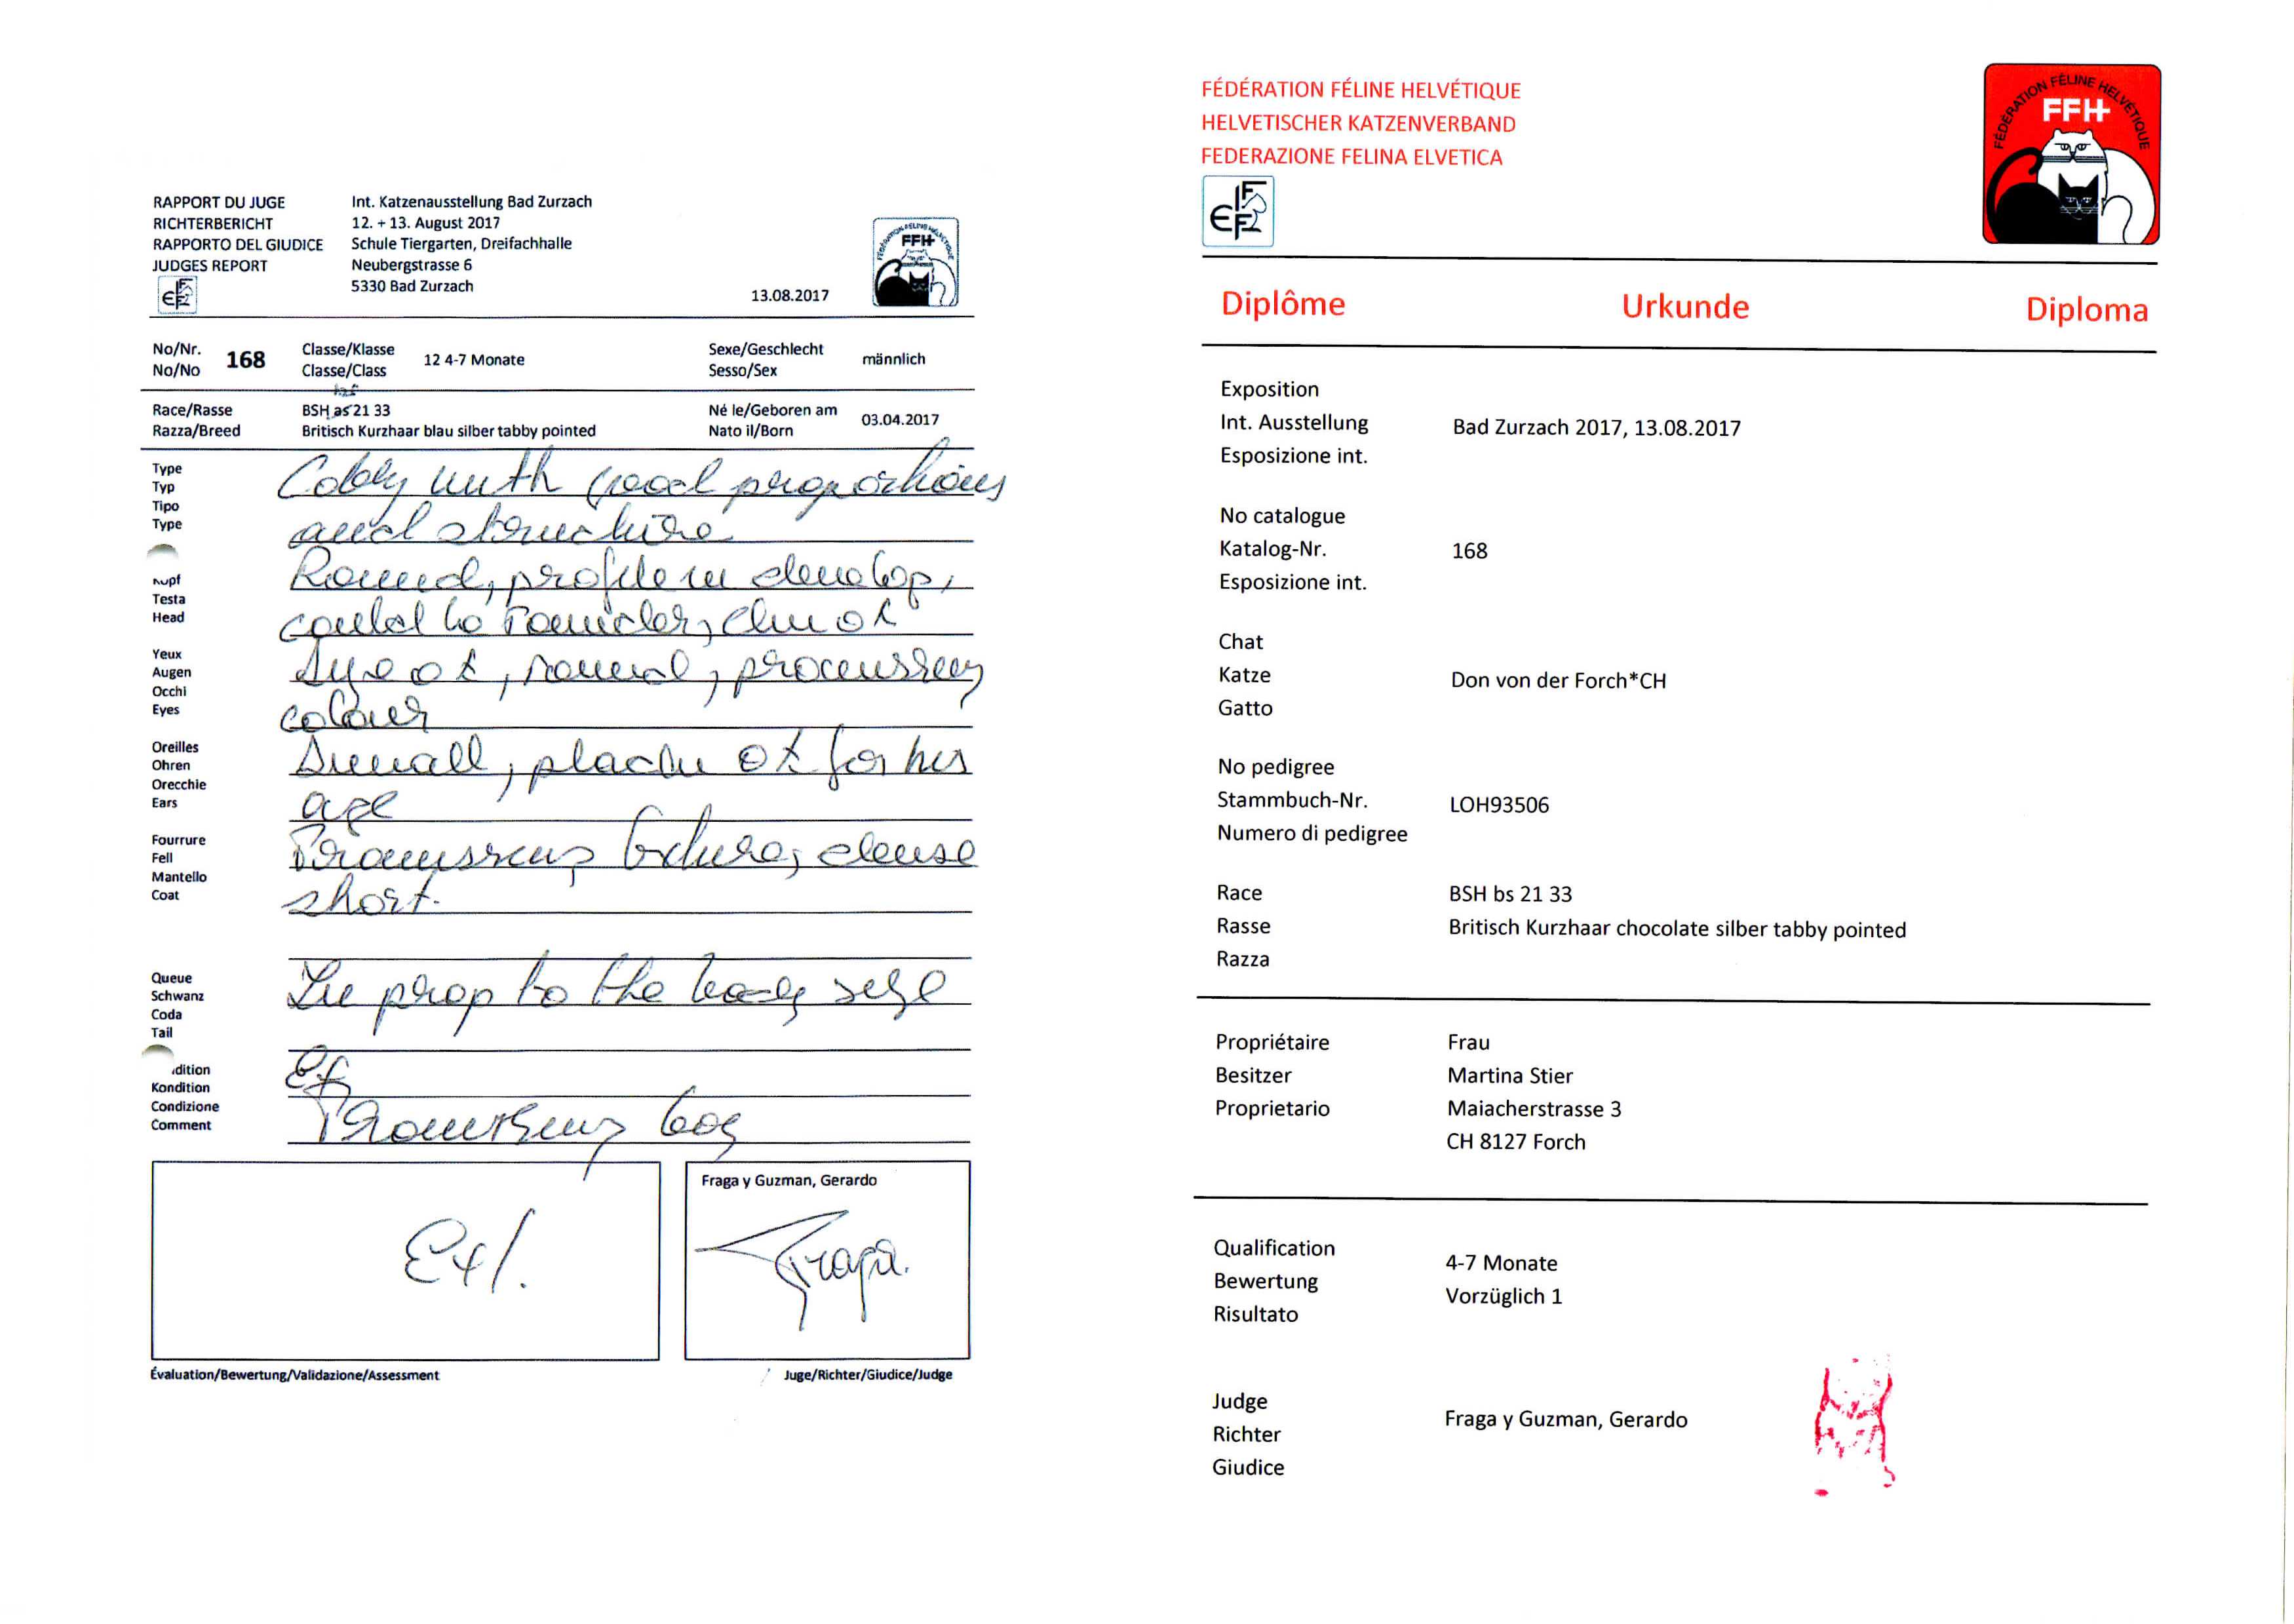 RAPPORT DU JUGE
RICHTERBERICHT
RAPPORTO DEL GIUDICE
JUDGES REPORT
Int. Katzenausstellung Bad Zurzach
12. + 13. August 2017
Schule Tiergarten, Dreifachhalle
Neubergstrasse 6
5330 Bad Zurzach
13.08.2017
FÉDÉRATION FÉLINE HELVÉTIQUE
FFH
No/Nr.
No/No
168
Classe/Klasse
Classe/Class
12 4-7 Monate
Sexe/Geschlecht
Sesso/Sex
männlich
Race/Rasse
Razza/Breed
bs
BSH as 21 33
Britisch Kurzhaar blau silber tabby pointed
Né le/Geboren am
Nato il/Born
03.04.2017
Type
Typ
Tipo
Type
Cobby with good proportions
and structure
Kopf
Testa
Head
Round, profile in develop,
could be rounder, chin ok
Yeux
Augen
Occhi
Eyes
Size ok, round, promissing
colour
Oreilles
Ohren
Orecchie
Ears
Small, placm ok for his
age
Fourrure
Fell
Mantello
Coat
Promissing texture, dense
short.
Queue
Schwanz
Coda
Tail
In prop to the body size
dition
Kondition
Condizione
Comment
Ex
Promissing boy
Ex1.
Fraga y Guzman, Gerardo
Fraga.
Évaluation/Bewertung/Validazione/Assessment
Juge/Richter/Giudice/Judge
FÉDÉRATION FÉLINE HELVÉTIQUE
HELVETISCHER KATZENVERBAND
FEDERAZIONE FELINA ELVETICA
FÉDÉRATION FÉLINE HELVÉTIQUE
FFH
Diplôme Urkunde Diploma
Exposition
Int. Ausstellung
Esposizione int.
Bad Zurzach 2017, 13.08.2017
No catalogue
Katalog-Nr.
Esposizione int.
168
Chat
Katze
Gatto
Don von der Forch*CH
No pedigree
Stammbuch-Nr.
Numero di pedigree
LOH93506
Race
Rasse
Razza
BSH bs 21 33
Britisch Kurzhaar chocolate silber tabby pointed
Propriétaire
Besitzer
Proprietario
Frau
Martina Stier
Maiacherstrasse 3
CH 8127 Forch
Qualification
Bewertung
Risultato
4-7 Monate
Vorzüglich 1
Judge
Richter
Giudice
Fraga y Guzman, Gerardo